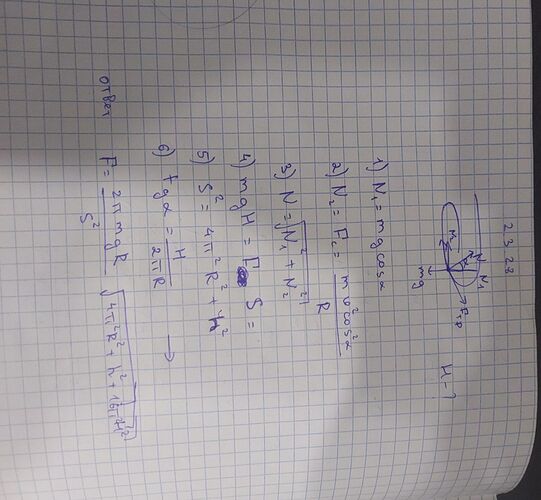 2.3.28
N
N₁
N₂
Fтр
mg
μ-?
1) N₁ = mg cosα
2) N₂ = Fc = mυ²cos²α / R
3) N = √(N₁² + N₂²)
4) mgH = F S =
5) S² = 4π²R² + h²
6) tgα = H / 2πR →
ответ F = 2πmgR / S² √(4π²R² + h² + 16π²H²)